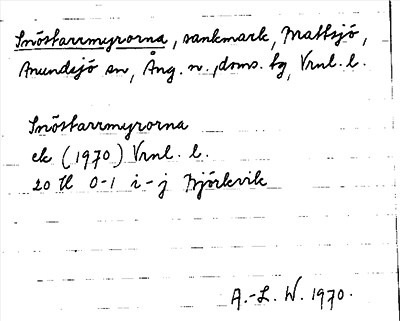 Snöstarrmyrorna, sankmark, Mattsjö,
Anundsjö sn, Ång. n., doms. bg, Vrnl. l.
Snöstarrmyrorna
ek (1970) Vrnl. l.
20 H 0-1 i-j Björkvik
A.-L. W. 1970.